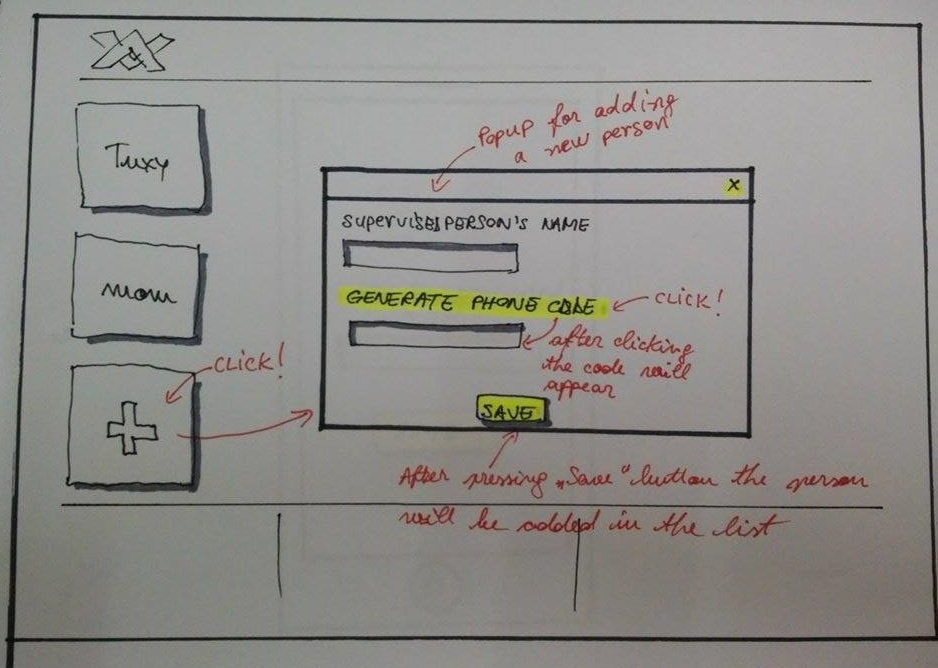 Tuxy
mom
CLICK!
Popup for adding
a new person
x
SUPERVISED PERSON'S NAME
GENERATE PHONE CODE
CLICK!
after clicking
the code will
appear
SAVE
After pressing „Save“ button the person
will be added in the list